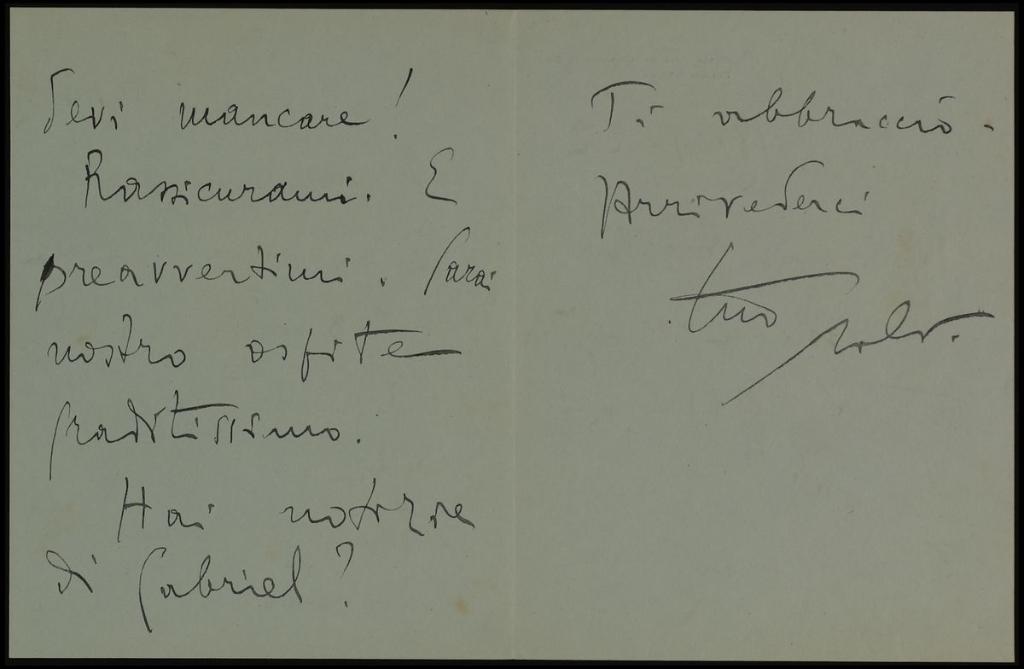 devi mancare!
Rassicurami. E
preavvertimi. Sarai
nostro ospite
graditissimo.
Hai notizie
di Gabriel?
Ti abbraccio.
Arrivederci
tuo